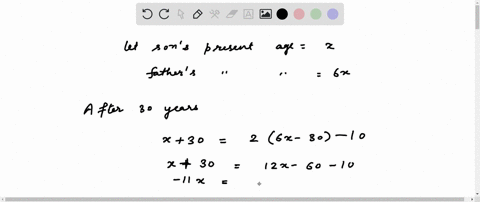 let son's present age = x
father's " " = 6x
After 30 years
x + 30 = 2 (6x - 30) - 10
x + 30 = 12x - 60 - 10
-11x =